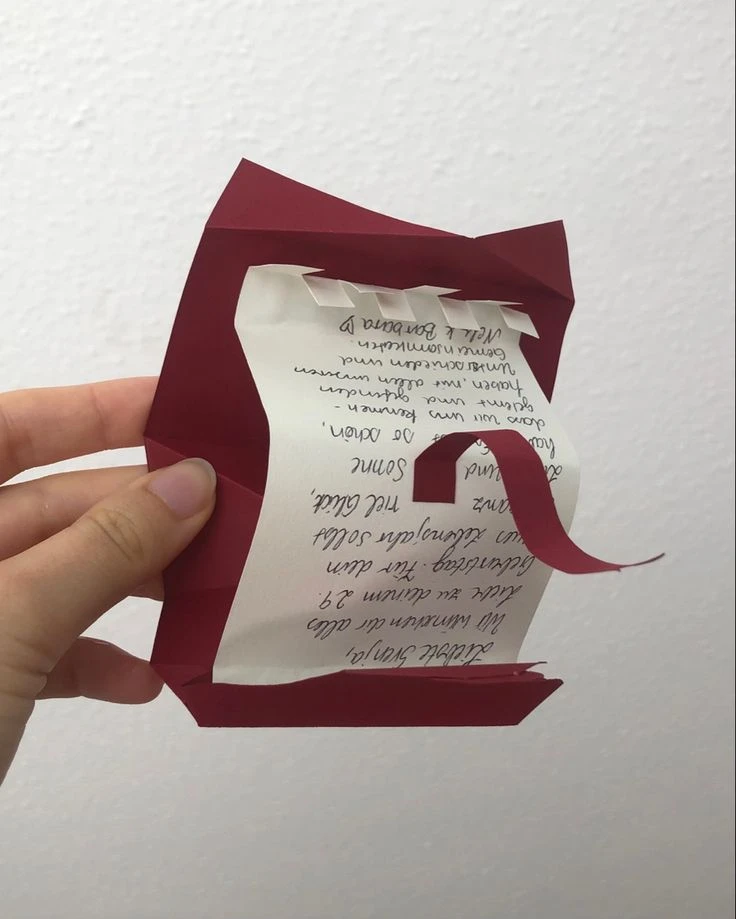 Liebste Svenja,
Wir wünschen dir alles
Liebe zu deinem 29.
Geburtstag. Für dein
Lebensjahr sollst
ganz viel Glück,
und Sonne
so schön,
dass wir uns kennen-
gelernt und gefunden
haben, mit allen unseren
Unterschieden und
Gemeinsamkeiten.
Nele & Barbara ♡